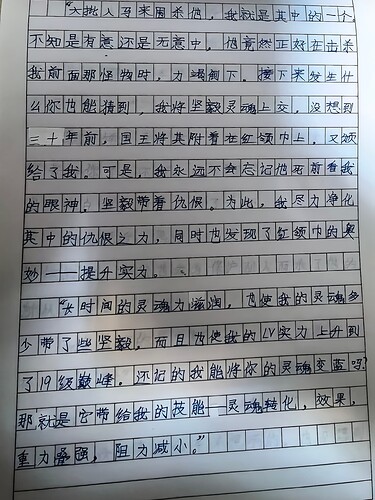 “大批人马来围杀他，我就是其中的一个。
不知是有意还是无意中，他竟然正好在击杀
我前面那怪物时，力竭倒下。接下来发生什
么你也能猜到，我将坚毅灵魂上交，没想到
三十年前，国王将其附着在红领巾上，又颁
给了我。可是，我永远不会忘记他死前看我
的眼神，坚毅带着仇恨。为此，我尽力净化
其中的仇恨之力，同时也发现了红领巾的奥
妙——提升实力。
“长时间的灵魂力滋润，也使我的灵魂多
少带了些坚毅，而且也使我的LV实力上升到
了19级巅峰。还记的我能将你的灵魂变蓝吗？
那就是它带给我的技能—灵魂转化，效果，
重力叠强，阻力减小。”